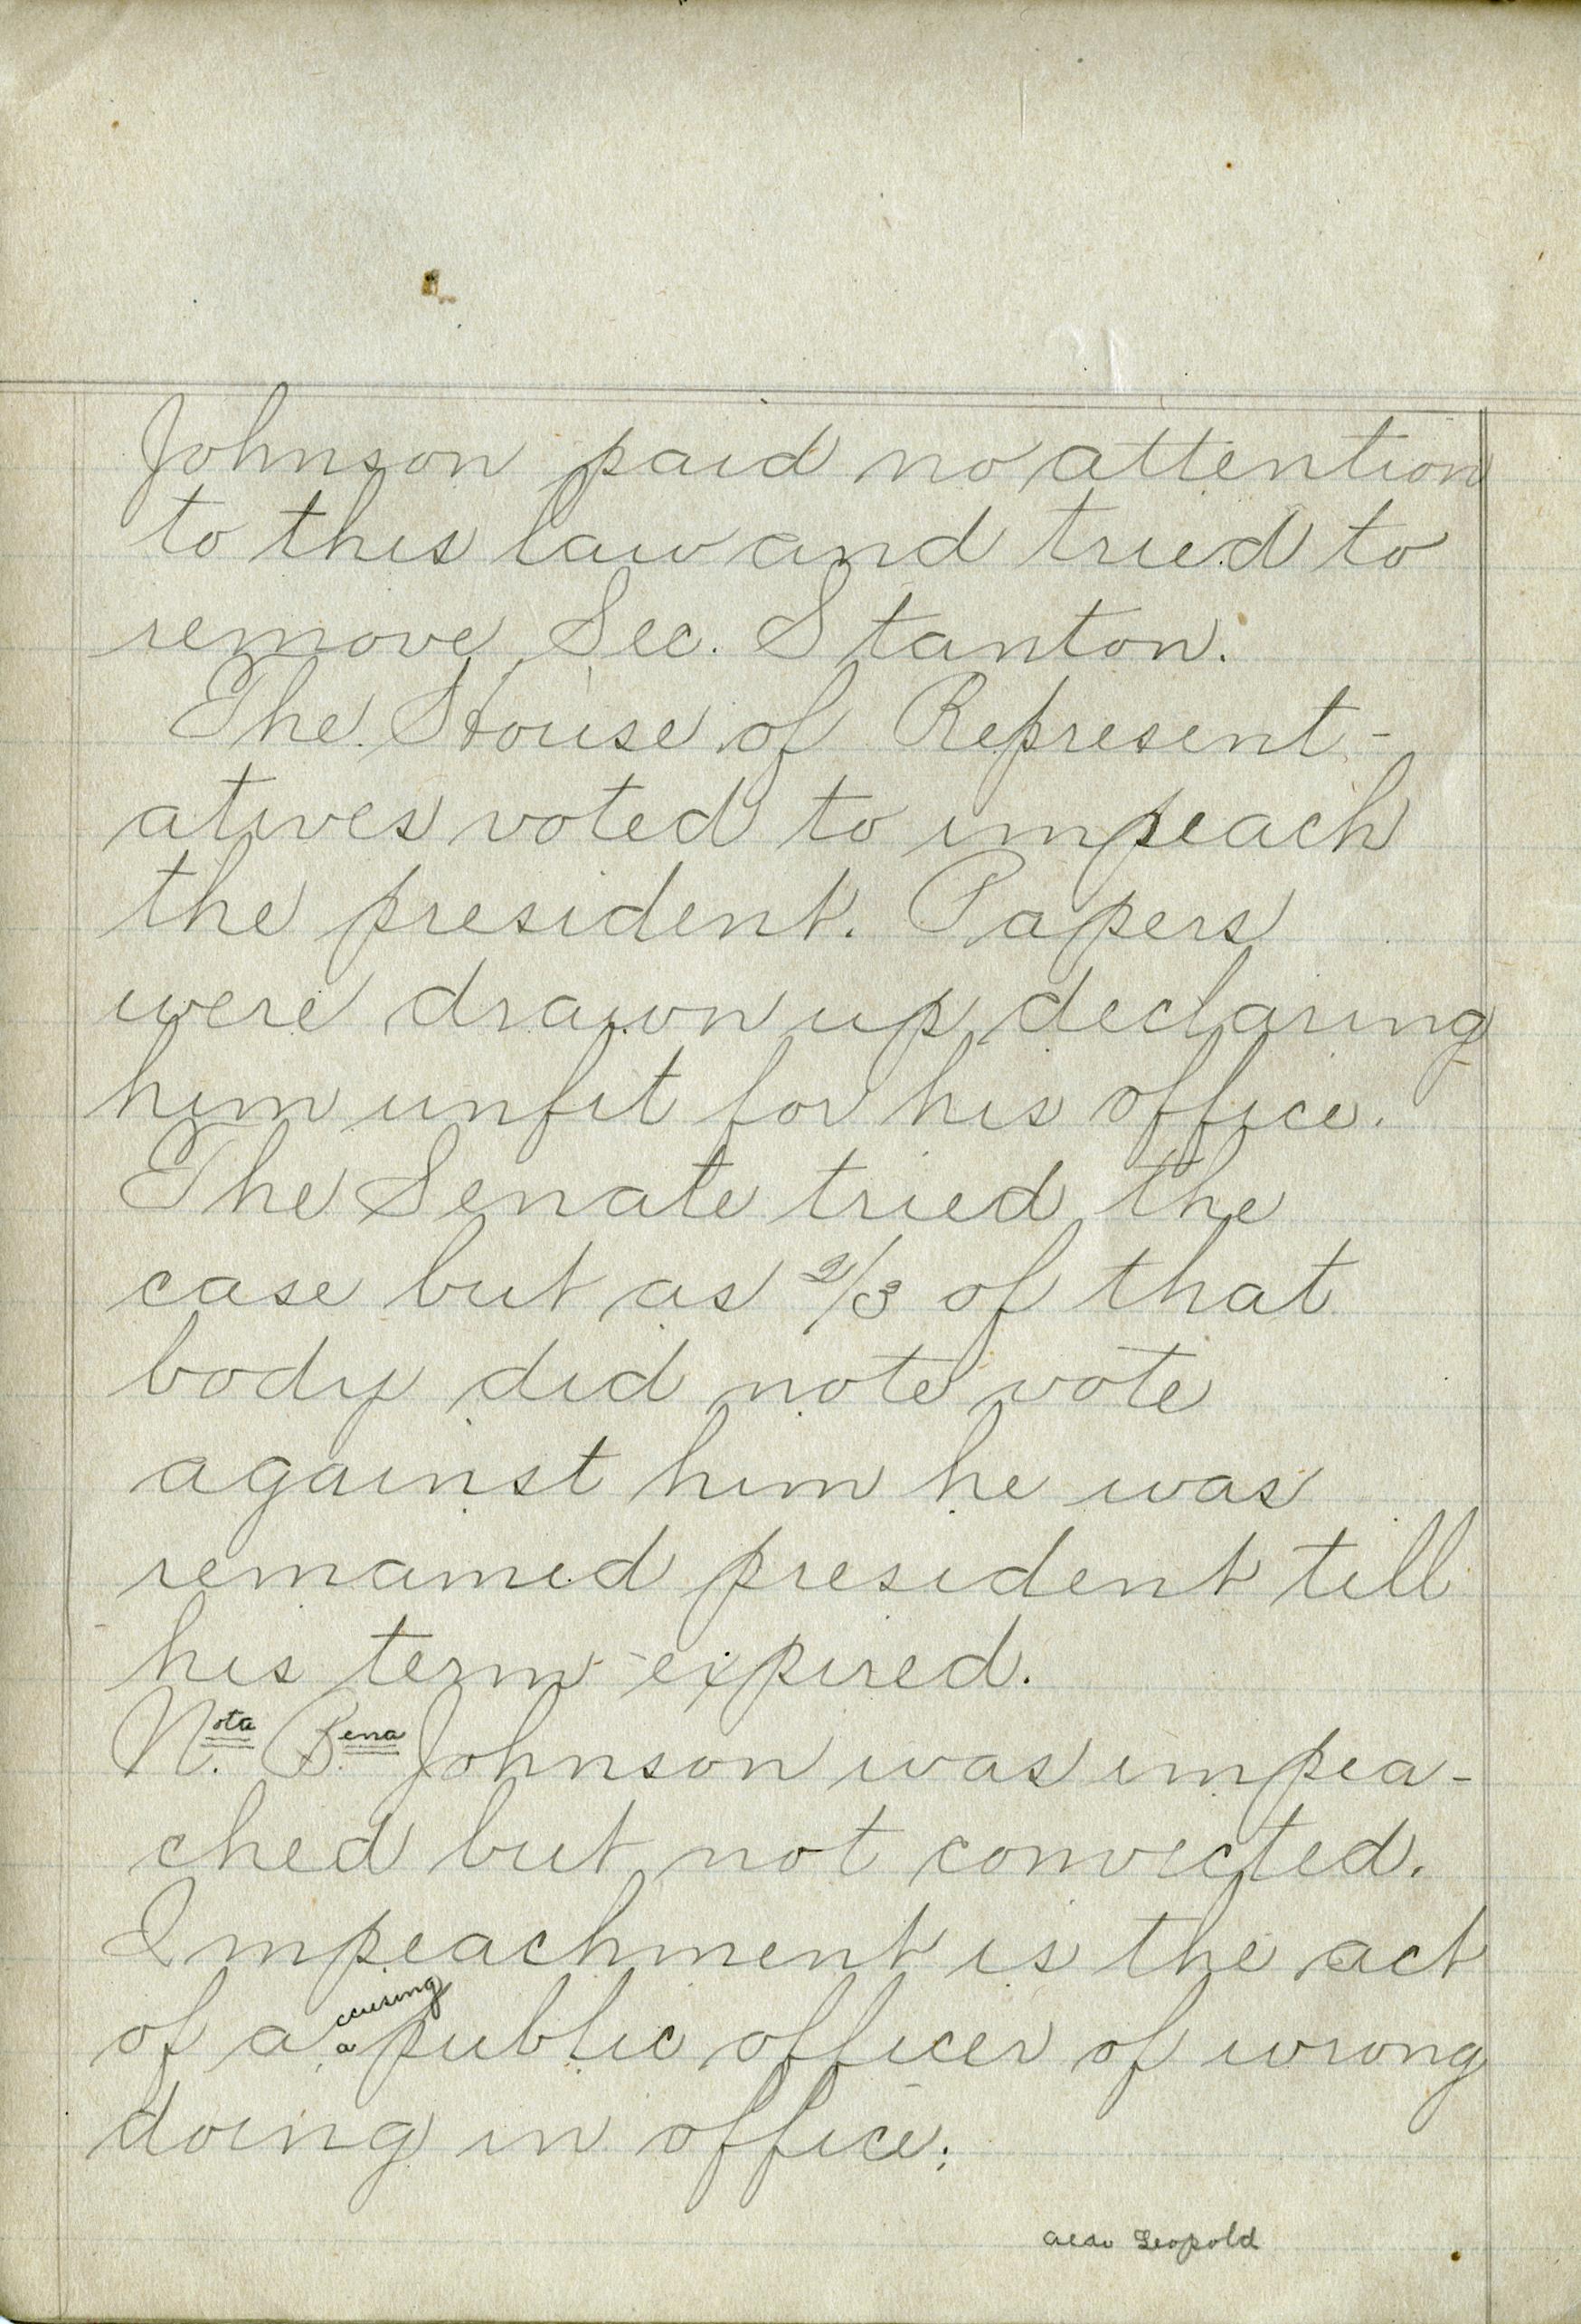 Johnson paid no attention
to this law and tried to
remove Sec. Stanton.
The House of Represent-
atives voted to impeach
the president. Papers
were drawn up declaring
him unfit for his office.
The Senate tried the
case but as 2/3 of that
body did note vote
against him he was
remained president till
his term expired.
Nota. Bena. Johnson was impea-
ched but not convicted.
Impeachment is the act
of a accusing public officer of wrong
doing in office.
Leopold